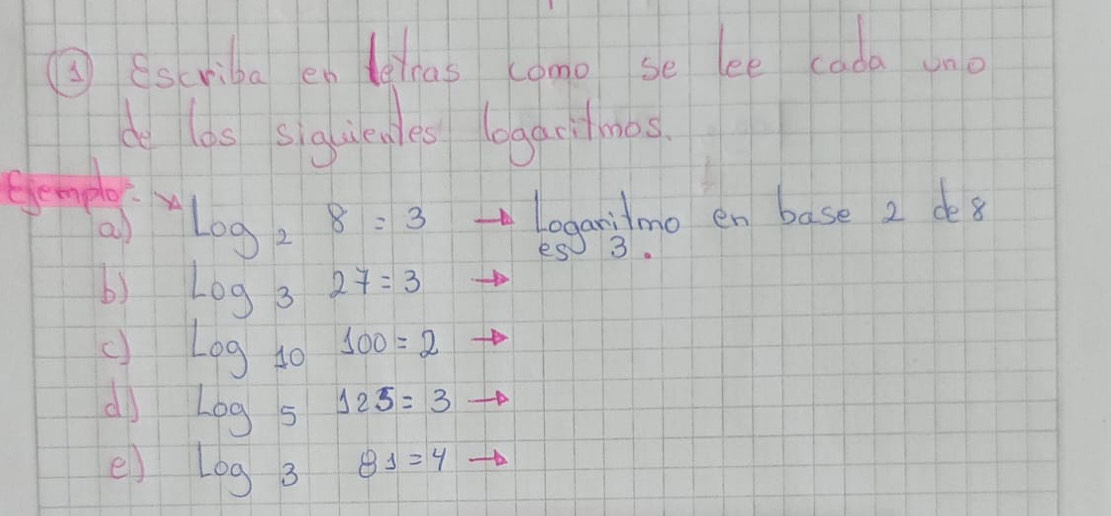 ① Escriba en letras como se lee cada uno
de los siguientes logaritmos.
Ejemplo:
a) * Log 2 8 = 3 → Logaritmo en base 2 de 8
es 3.
b) Log 3 27 = 3 →
c) Log 10 100 = 2 →
d) Log 5 125 = 3 →
e) Log 3 81 = 4 →